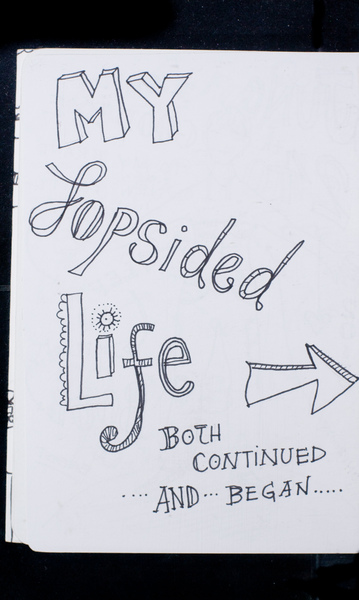 MY
Lopsided
Life
BOTH
CONTINUED
.... AND ... BEGAN .....